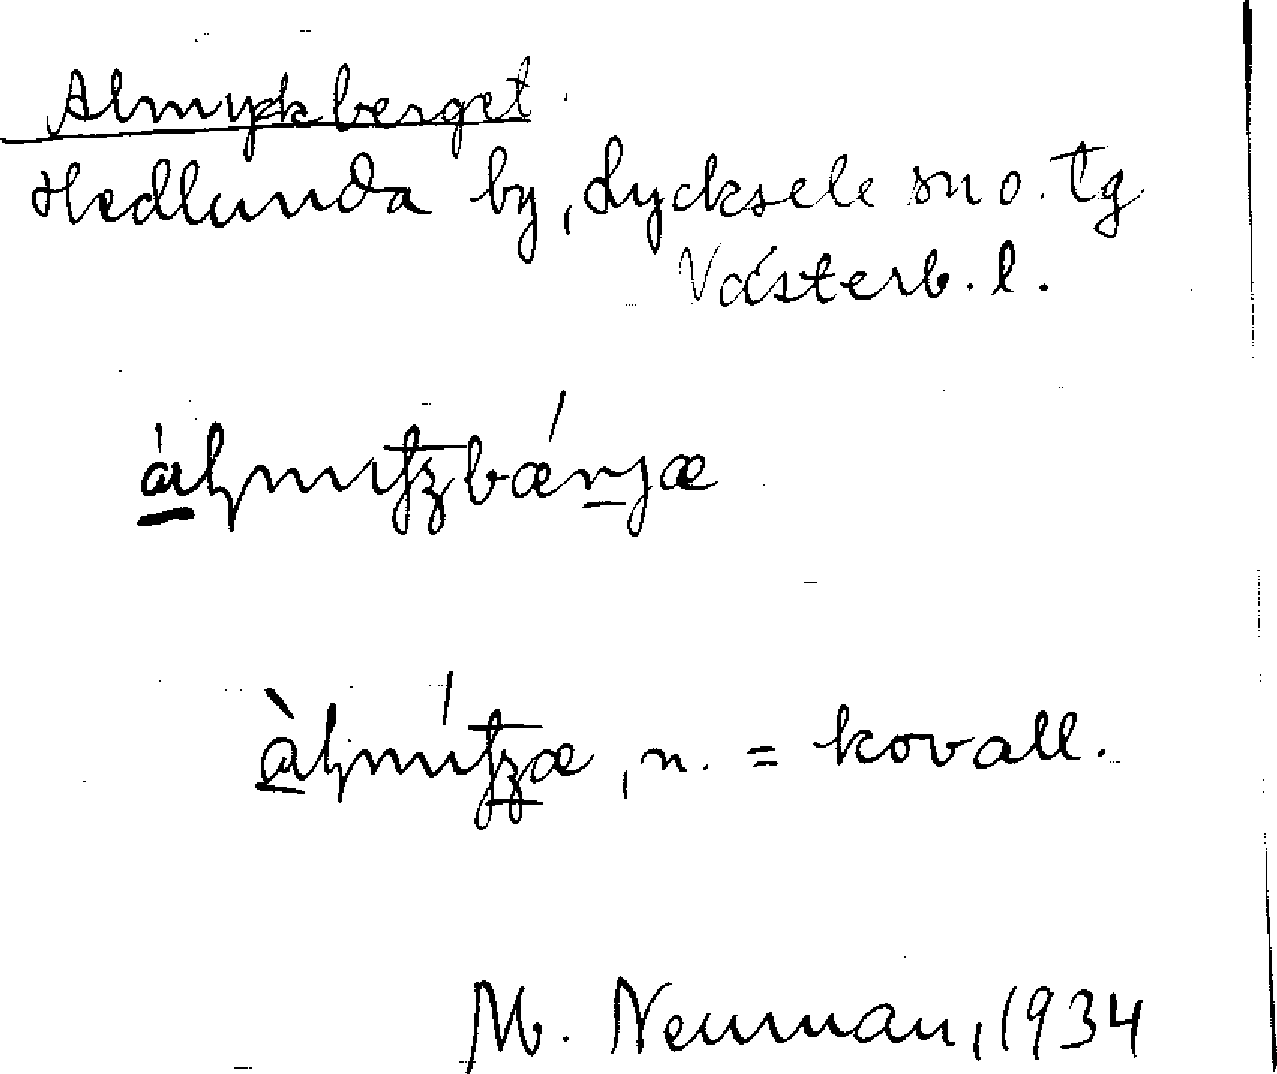 Almyckberget
Hedlunda by, Lycksele sn o. tg
Västerb. l.
, n. = kovall.
M. Neuman, 1934